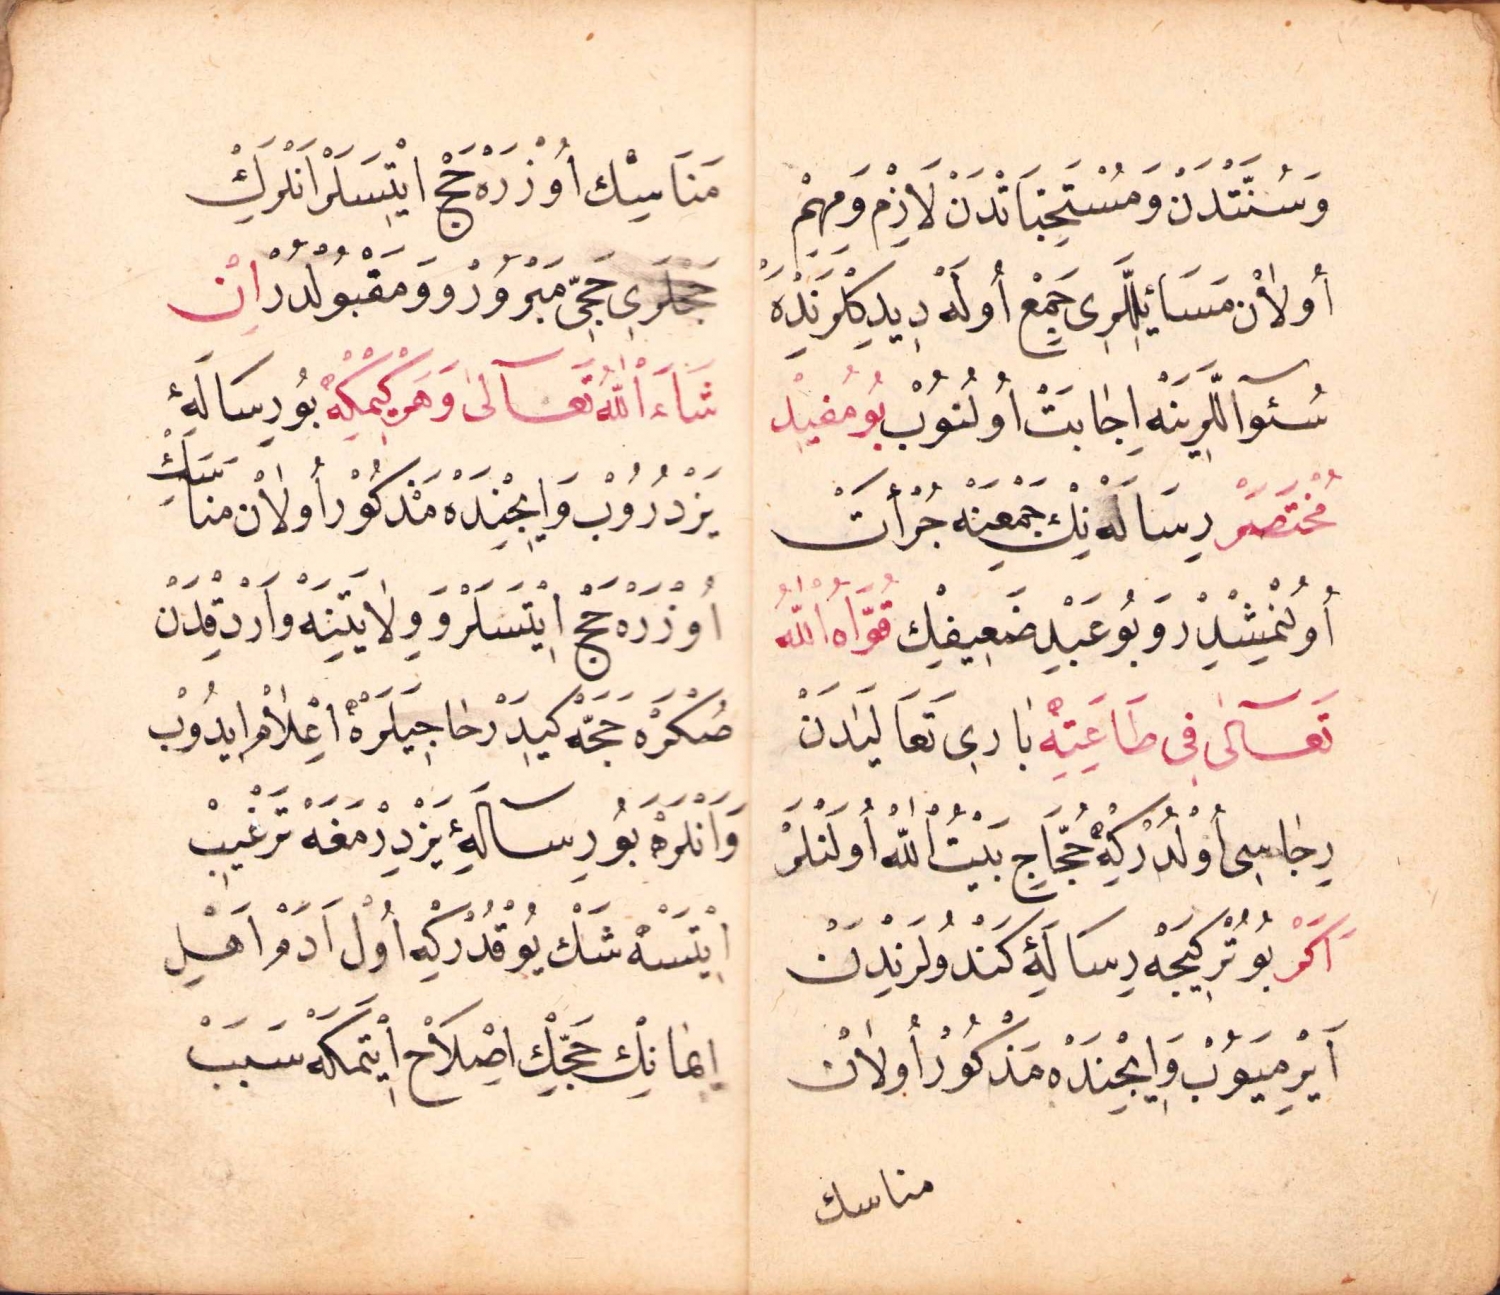 وَسُنَّتْدَنْ وَمُسْتَحِبَّاتْدَنْ لَازِمْ وَمِهِمّ
أُولَانْ مَسَائِلْلَرِى جَمْعْ أُولَه دِيدِكْلَرِنْدَه
سُئَوآللَّرِينَه اِجَابَتْ أُولُنُوبْ بُو مُفِيدِ
مُخْتَصَرْ رِسَالَهنِكْ جَمْعِنَه جُرْأَتْ
أُولُنْمِشْدِرْ وَبُو عَبْدِ ضَعِيفِكْ قَوَّاهُ اللّٰهُ
تَعَالٰى فِى طَاعَتِهِ بَارِى تَعَالَيَدَنْ
رِجَاسِى أُوْلْدُرْكِه حُجَّاجِ بَيْتُ اللّٰه أُولَنْلَرْ
اَكَرْ بُو تُرْكِيجَه رِسَالَهٔ كَنْدُولَرِنْدَنْ
اَيِرْمَيُوبْ وَاِيچِنْدَه مَذْكُورْ أُولَانْ
مناسك
مَنَاسِكْ أُوزْرَه حَجْ اِيْتِسَلَرْ اَنْلَرِكْ
حَجْلَرِى حَجِّ مَبْرُورْ وَمَقْبُولْدُرْ اِنْ
شَاءَ اللّٰهُ تَعَالٰى وَهَرْ كِيمْكِه بُو رِسَالَهٔ
يَزْدُرُوبْ وَاِيچِنْدَه مَذْكُورْ أُولَانْ مَنَاسِكْ
أُوزْرَه حَجْ اِيْتْسَلَرْ وَوِلَايَتِنَه وَارْدِقْدَنْ
صُكْرَه حَجَّه كِيدَرْ حَاجِيلَرَه اِعْلَامْ اِيدُوبْ
وَاَنْلَرَه بُو رِسَالَهٔ يَزْدِرْمَغَه تَرْغِيبْ
اِيْتْسَه شَكْ يُوقْدُرْكِه أُولْ اَدَمْ اَهْلِ
اِيمَانِكْ حَجِّكْ اِصْلَاحْ اِيْتْمَكَه سَبَبْ